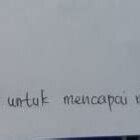 untuk mencapai